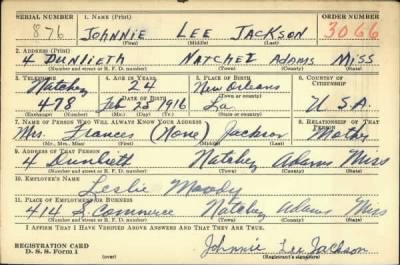 SERIAL NUMBER 1. NAME (Print) ORDER NUMBER
876 JOHNNIE LEE JACKSON 3066
(First) (Middle) (Last)
2. ADDRESS (Print)
4 DUNLIETH NATCHEZ ADAMS MISS
(Number and street or R. F. D. number) (Town) (County) (State)
3. TELEPHONE 4. AGE IN YEARS 5. PLACE OF BIRTH 6. COUNTRY OF CITIZENSHIP
Natchez 24 New Orleans
DATE OF BIRTH (Town or county)
478 Feb 25 1916 La U.S.A.
(Exchange) (Number) (Mo.) (Day) (Yr.) (State or country)
7. NAME OF PERSON WHO WILL ALWAYS KNOW YOUR ADDRESS 8. RELATIONSHIP OF THAT PERSON
Mrs. Frances (None) Jackson Mother
(Mr., Mrs., Miss) (First) (Middle) (Last)
9. ADDRESS OF THAT PERSON
4 Dunlieth Natchez Adams Miss
(Number and street or R. F. D. number) (Town) (County) (State)
10. EMPLOYER'S NAME
Leslie Moody
11. PLACE OF EMPLOYMENT OR BUSINESS
414 S. Commerce Natchez Adams Miss
(Number and street or R. F. D. number) (Town) (County) (State)
I AFFIRM THAT I HAVE VERIFIED ABOVE ANSWERS AND THAT THEY ARE TRUE.
REGISTRATION CARD Johnnie Lee Jackson
D. S. S. Form 1 (over) (Registrant's signature)